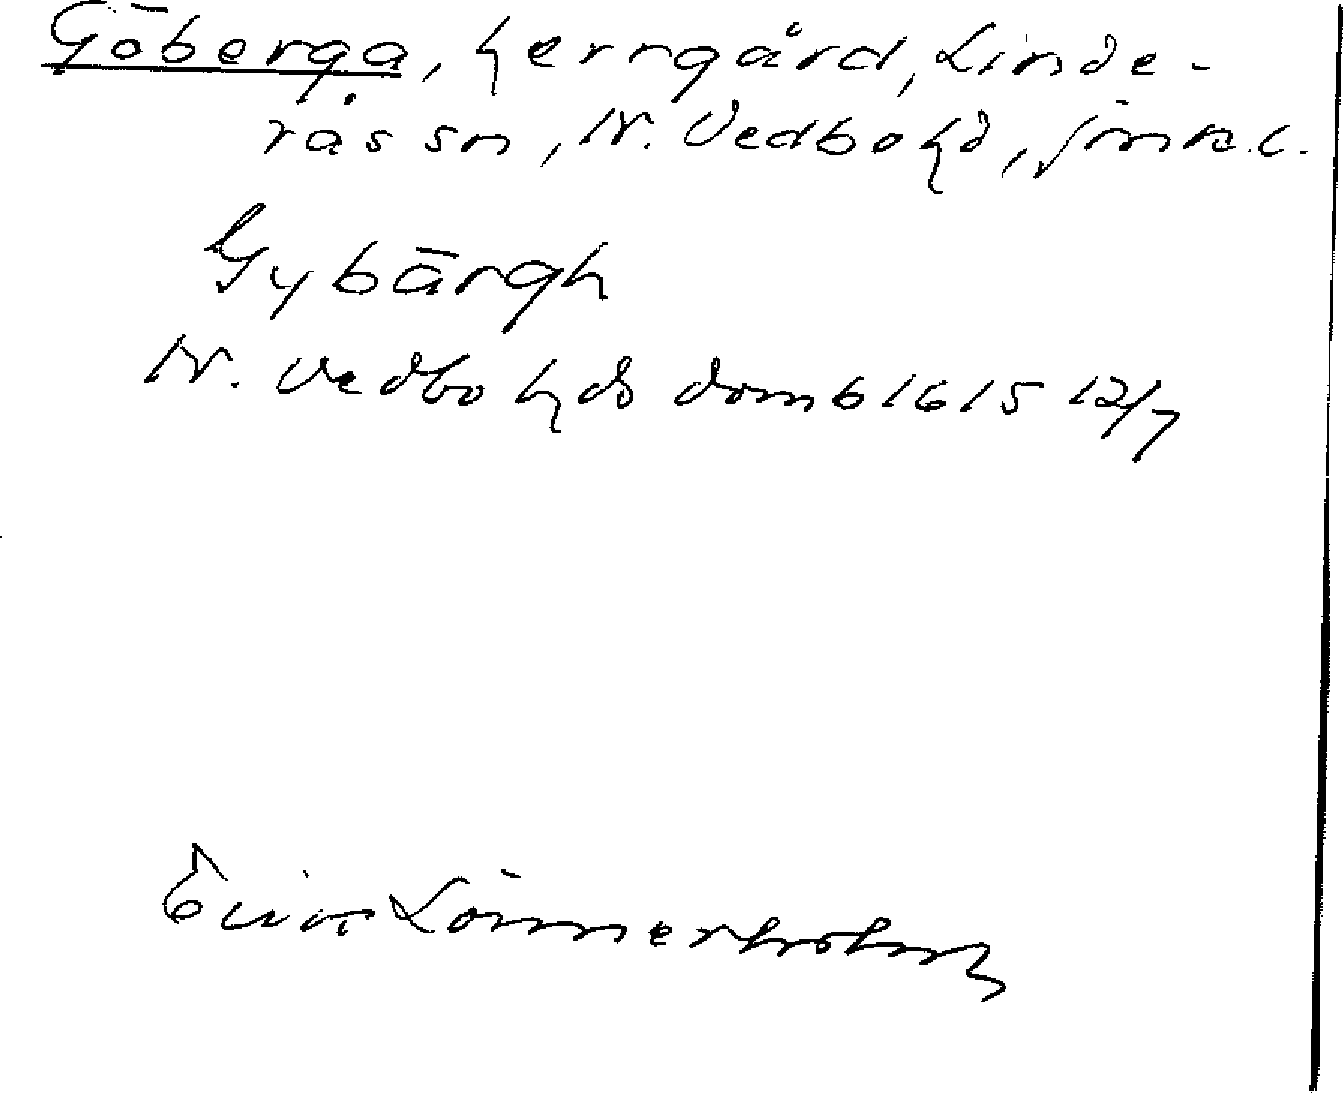 Göberga, herrgård, Linde-
rås sn, N. Vedbo hd, Jönk.l.
Gybärgh
N. Vedbo hds domb 1615 12/7
Erik Lönnerholm